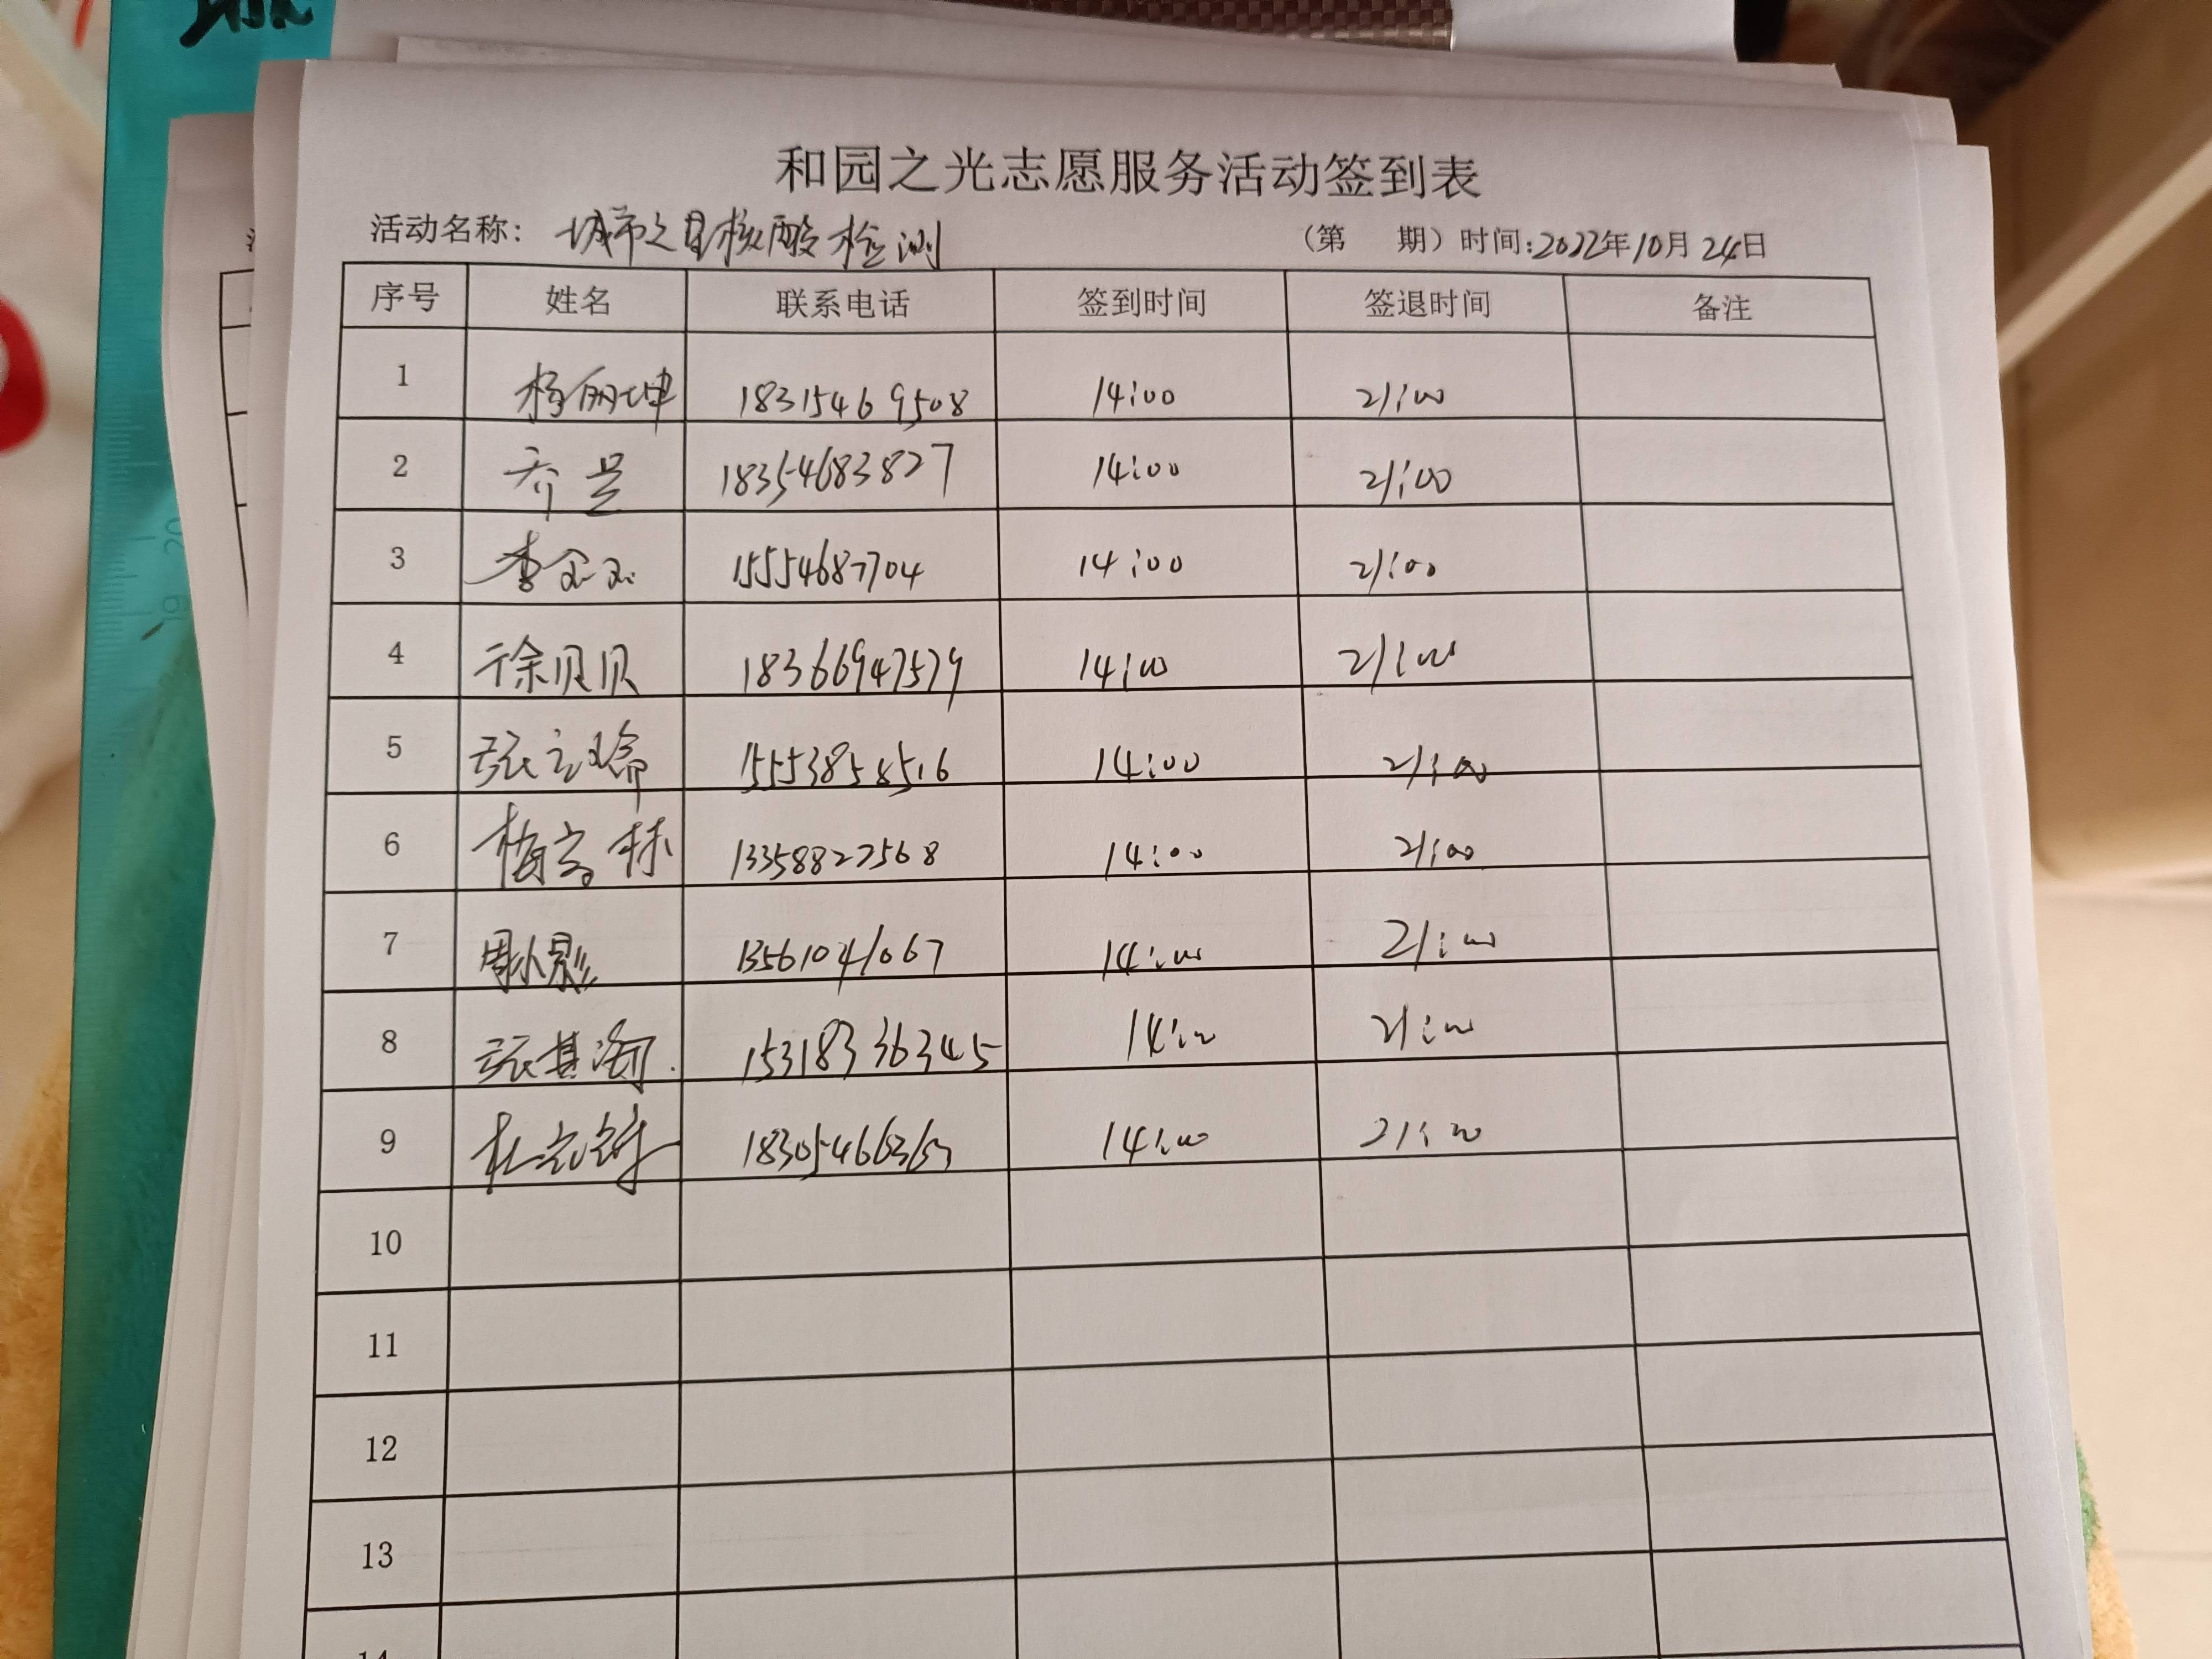 和园之光志愿服务活动签到表
活动名称：城市之星核酸检测 （第 期）时间:2022年10月24日
序号 姓名 联系电话 签到时间 签退时间 备注
1 杨丽坤 18315469508 14:00 21:00
2 乔昱 18354683827 14:00 21:00
3 李 15554687704 14:00 21:00
4 徐贝贝 18366947579 14:00 21:00
5 张 15553858516 14:00 21:00
6 梅 林 13358827568 14:00 21:00
7 周小影 13561041067 14:00 21:00
8 张其 15318336345 14:00 21:00
9 杜 18305466363 14:00 21:00
10
11
12
13
14
19 20